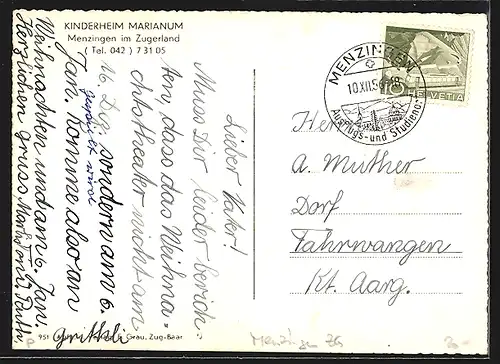 KINDERHEIM MARIANUM
Menzingen im Zugerland
( Tel. 042 ) 7 31 05
Lieber Vater!
Muss Dir leider berich-
ten, dass das Weihna-
chtstheater nicht am
16. Dez. sondern am 6.
gespielt wird
Jan. Komme also an
Weihnachten und am 6. Jan.
Herzlichen Gruss
MENZINGEN
10.XII.
Ausflugs- und Studienort
HELVETIA
Herr
A. Muther
Dorf
Fahrwangen
Kt. Aarg.
951
Grau, Zug-Baar
Menzingen ZG